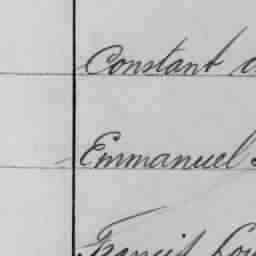 Constant
Emmanuel
Francis Lou